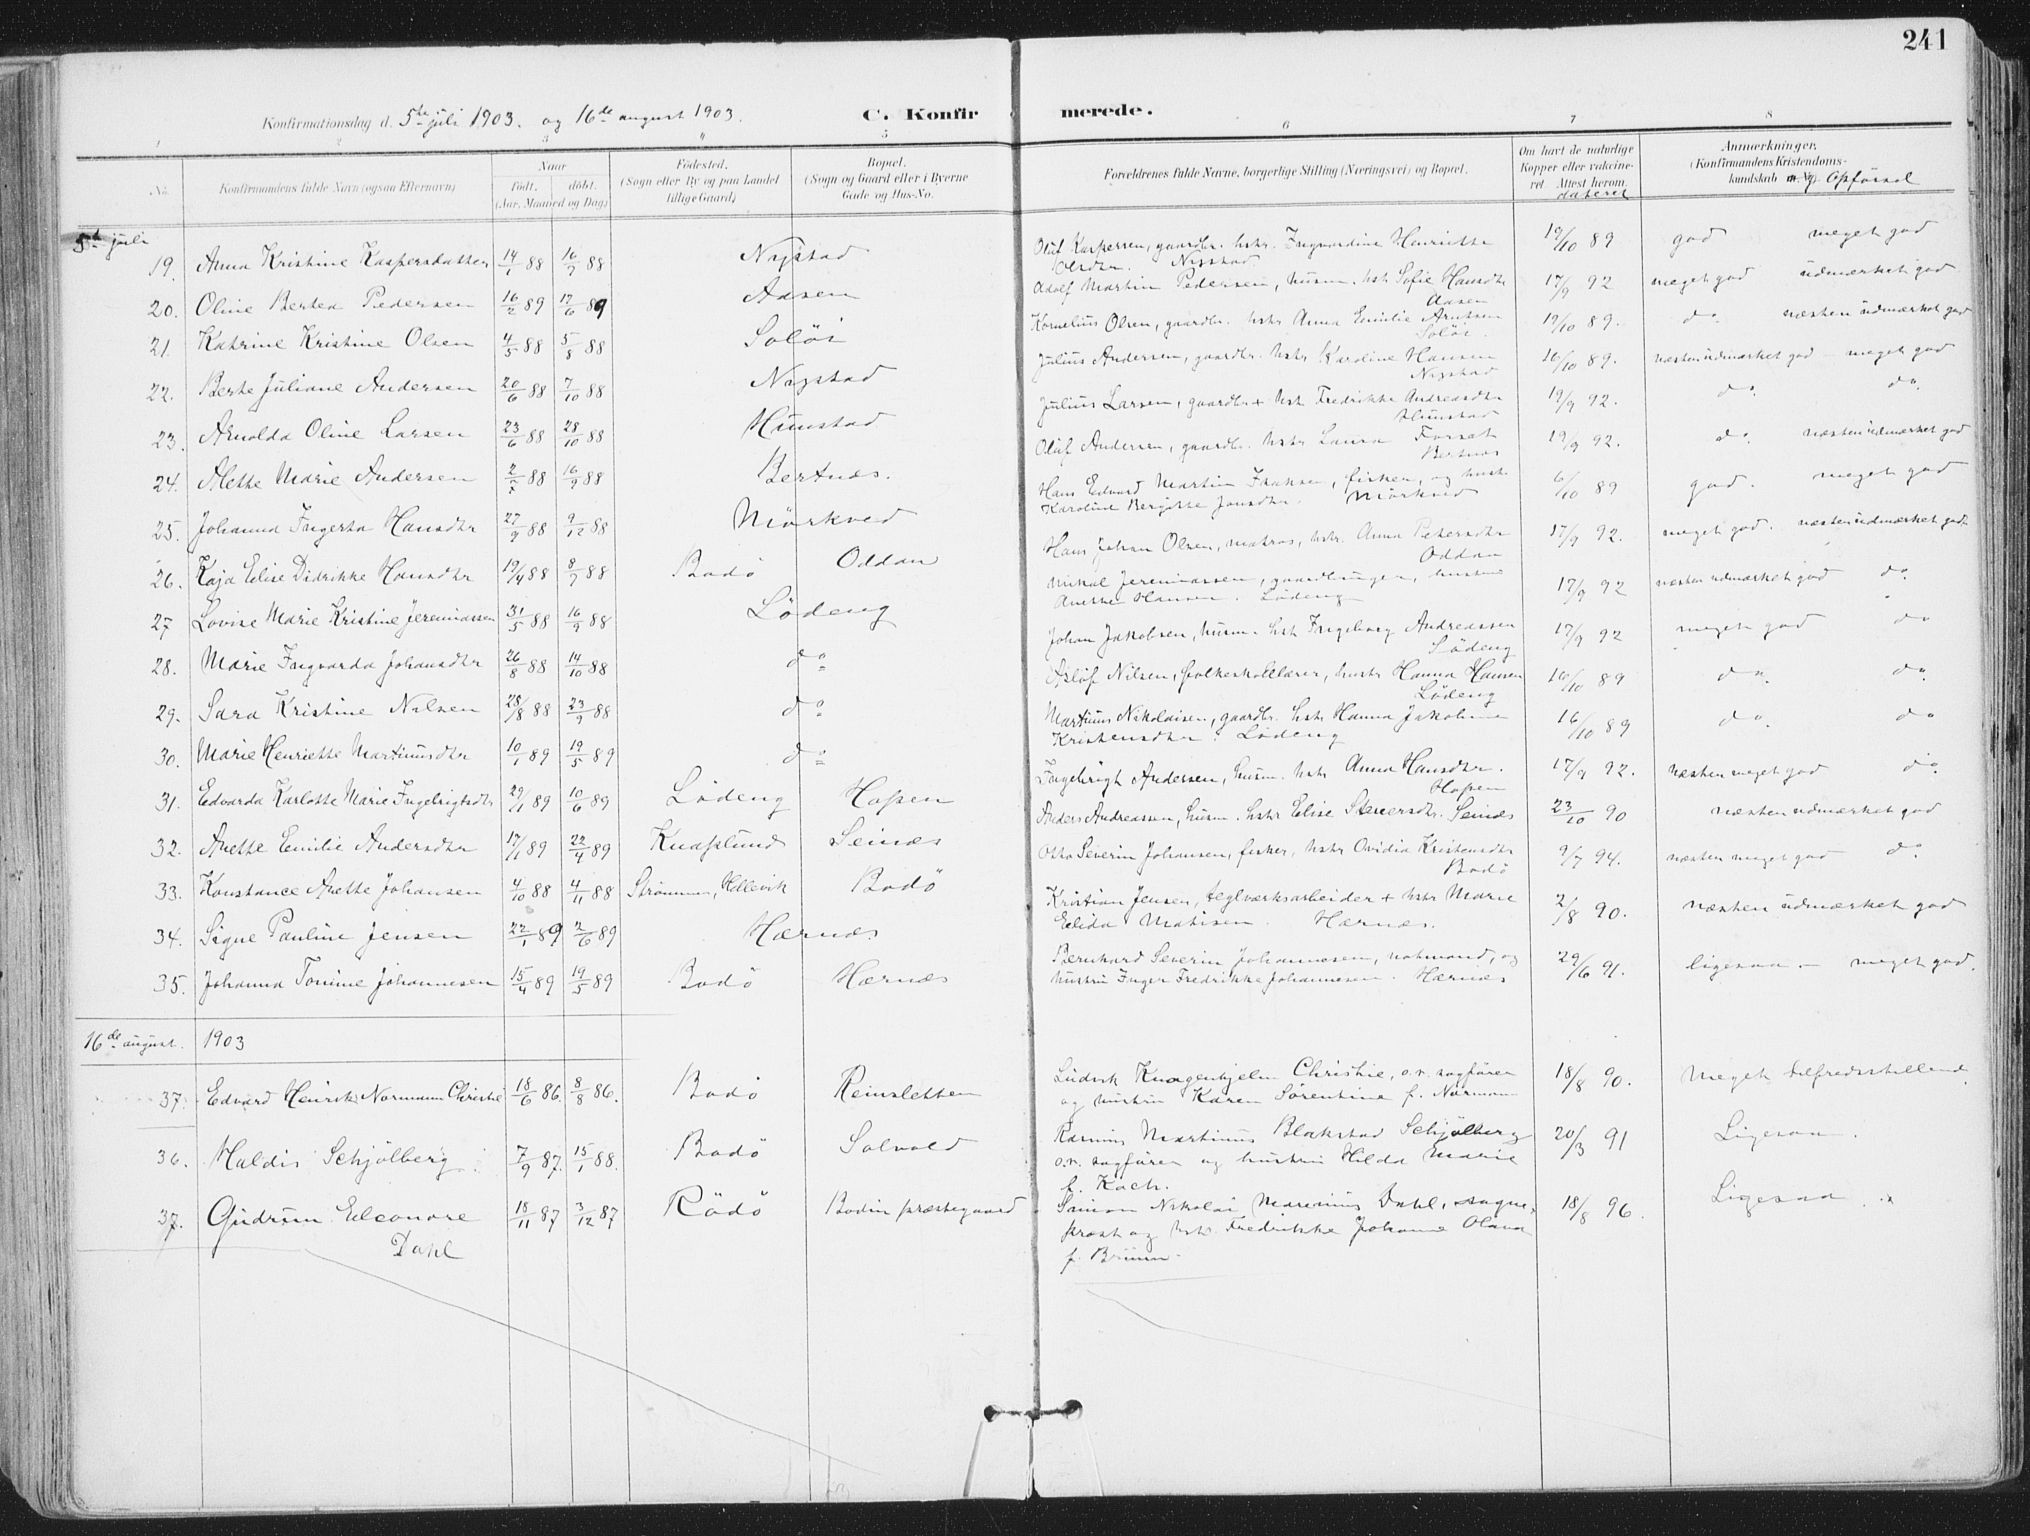 241
Konfirmationsdag d. 5te juli 1903. og 16de august 1903.
C. Konfirmerede.
1 2 3 4 5 6 7 8
No. Konfirmandens fulde Navn (ogsaa Efternavn) Naar født. døbt. (Aar, Maaned og Dag) Fødested. (Sogn eller By og paa Landet tillige Gaard) Bopæl. (Sogn og Gaard eller i Byerne Gade og Hus-No. Forældrenes fulde Navne, borgerlige Stilling (Næringsvei) og Bopæl. Om havt de naturlige Kopper eller vaccineret. Attest herom dateret Anmærkninger. (Konfirmandens Kristendomskundskab og Opførsel
5te juli
19. Anna Kristine Kaspersdatter 14/1 88 16/9 88 Nystad Oluf Kaspersen, gaardbr. hstr. Ingvardine Henriette Olsdtr. Nystad 19/10 89 god meget god
20. Oline Bertea Pedersen 16/2 89 17/6 89 Aasen Adolf Martin Pedersen, husm. hst Sofie Hansdtr Aasen 17/9 92 meget god udmærket god
21. Katrine Kristine Olsen 4/5 88 5/8 88 Soløi Kornelius Olsen, gaardbr. hstr Anna Emilie Arntsen Soløi. 19/10 89. do. næsten udmærket god
22. Berte Juliane Andersen 20/6 88 7/10 88 Nystad Julius Andersen, gaardbr. hstr Karoline Hansen Nystad 16/10 89. næsten udmærket god – meget god
23. Arnolda Oline Larsen 23/6 88 28/10 88 Hunstad Julius Larsen, gaardbr + hst Fredrikke Andreasdtr Hunstad 19/9 92. do. do.
24. Alette Marie Andersen 2/7 88 16/9 88 Bertnes. Oluf Andersen, gaardbr. hstr Laura Forsat Bertnes 19/9 92. do. næsten udmærket god
25. Johanna Ingerta Hansdtr 27/9 88 9/12 88 Mørkved Hans Edvard Martin Isaksen, fisker, og hustr Karoline Bergitte Jonsdtr. Mørkved 6/10 89 god. meget god
26. Kaja Elise Didrikke Hansdtr 19/4 88 8/7 88 Bodø Oddan Hans Johan Olsen, matros, hstr. Anna Petersdtr Oddan 17/9 92. meget god. næsten udmærket god
27 Lovise Marie Kristine Jeremiassen 31/5 88 16/9 88 Lødeng Mikal Jeremiassen, gaardbruger, hustru Anette Hansen. Lødeng 17/9 92 næsten udmærket god do.
28. Marie Ingvarda Johansdtr 26/8 88 14/10 88 do Johan Jakobsen, husm. hst Ingeborg Andreassen Lødeng 17/9 92 meget god do
29. Sara Kristine Nilsen 28/8 88 23/9 88 do Asløf Nilsen, folkeskolelærer, hustr Hanna Hansen Lødeng 16/10 89 do. do.
30. Marie Henriette Martinusdtr 10/1 89 19/5 89 do Martinus Nikolaisen, gaardbr. hstr Hanna Jakobine Kristensdtr. Lødeng 16/10 89 do. do
31. Edvarda Karlotte Marie Ingebrigtsdtr 29/1 89 10/6 89 Lødeng Hopen Ingebrigt Andersen, husm. hstr Anna Hansdtr. Hopen 17/9 92. næsten meget god do.
32. Anette Emilie Andersdtr 17/1 89 22/4 89 Knaplund Seines Anders Andreassen, husm. hstr Elise Steversdtr. Seines 23/10 90 næsten udmærket god
33. Konstance Anette Johansen 4/10 88 4/11 88 Strømmen, Hellevik Bodø Otto Severin Johansen, fisker, hstr Ovidia Kristensdtr Bodø 9/7 94. næsten meget god do.
34. Signe Pauline Jensen 22/1 89 2/6 89 Hernes Kristian Jensen, teglværksarbeider + hstr Marie Elida Matisen. Hernes. 2/8 90. næsten udmærket god
35. Johanna Tomine Johannesen 15/4 89 19/5 89 Bodø Hernes Bernhard Severin Johannesen, notmand, og hustru Inger Fredrikke Johannesen Hernes 29/6 91. ligesaa – meget god.
16de august. 1903
37. Edvard Henrik Normann Christie 18/6 86. 8/8 86. Bodø Reinsletten Ludvik Knagenhjelm Christie, o.r. sagfører og hustru Karen Sørentine f. Normann 18/8 90. Meget tilfredsstillende.
36. Haldis Schjølberg. 7/9 87. 15/1 88. Bodø Solvold Rasmus Martinus Blakstad Schjølberg o.r. sagfører og hustru Hilda Marie f. Koch. 20/3 91 Ligesaa.
37. Gudrun Eleonore Dahl 18/11 87 3/12 87 Rødø Bodin præstegaard Simon Nikolai Marenius Dahl, sogneprest og hstr. Fredrikke Johanne Olava f. Bruun. 18/8 96. Ligesaa.